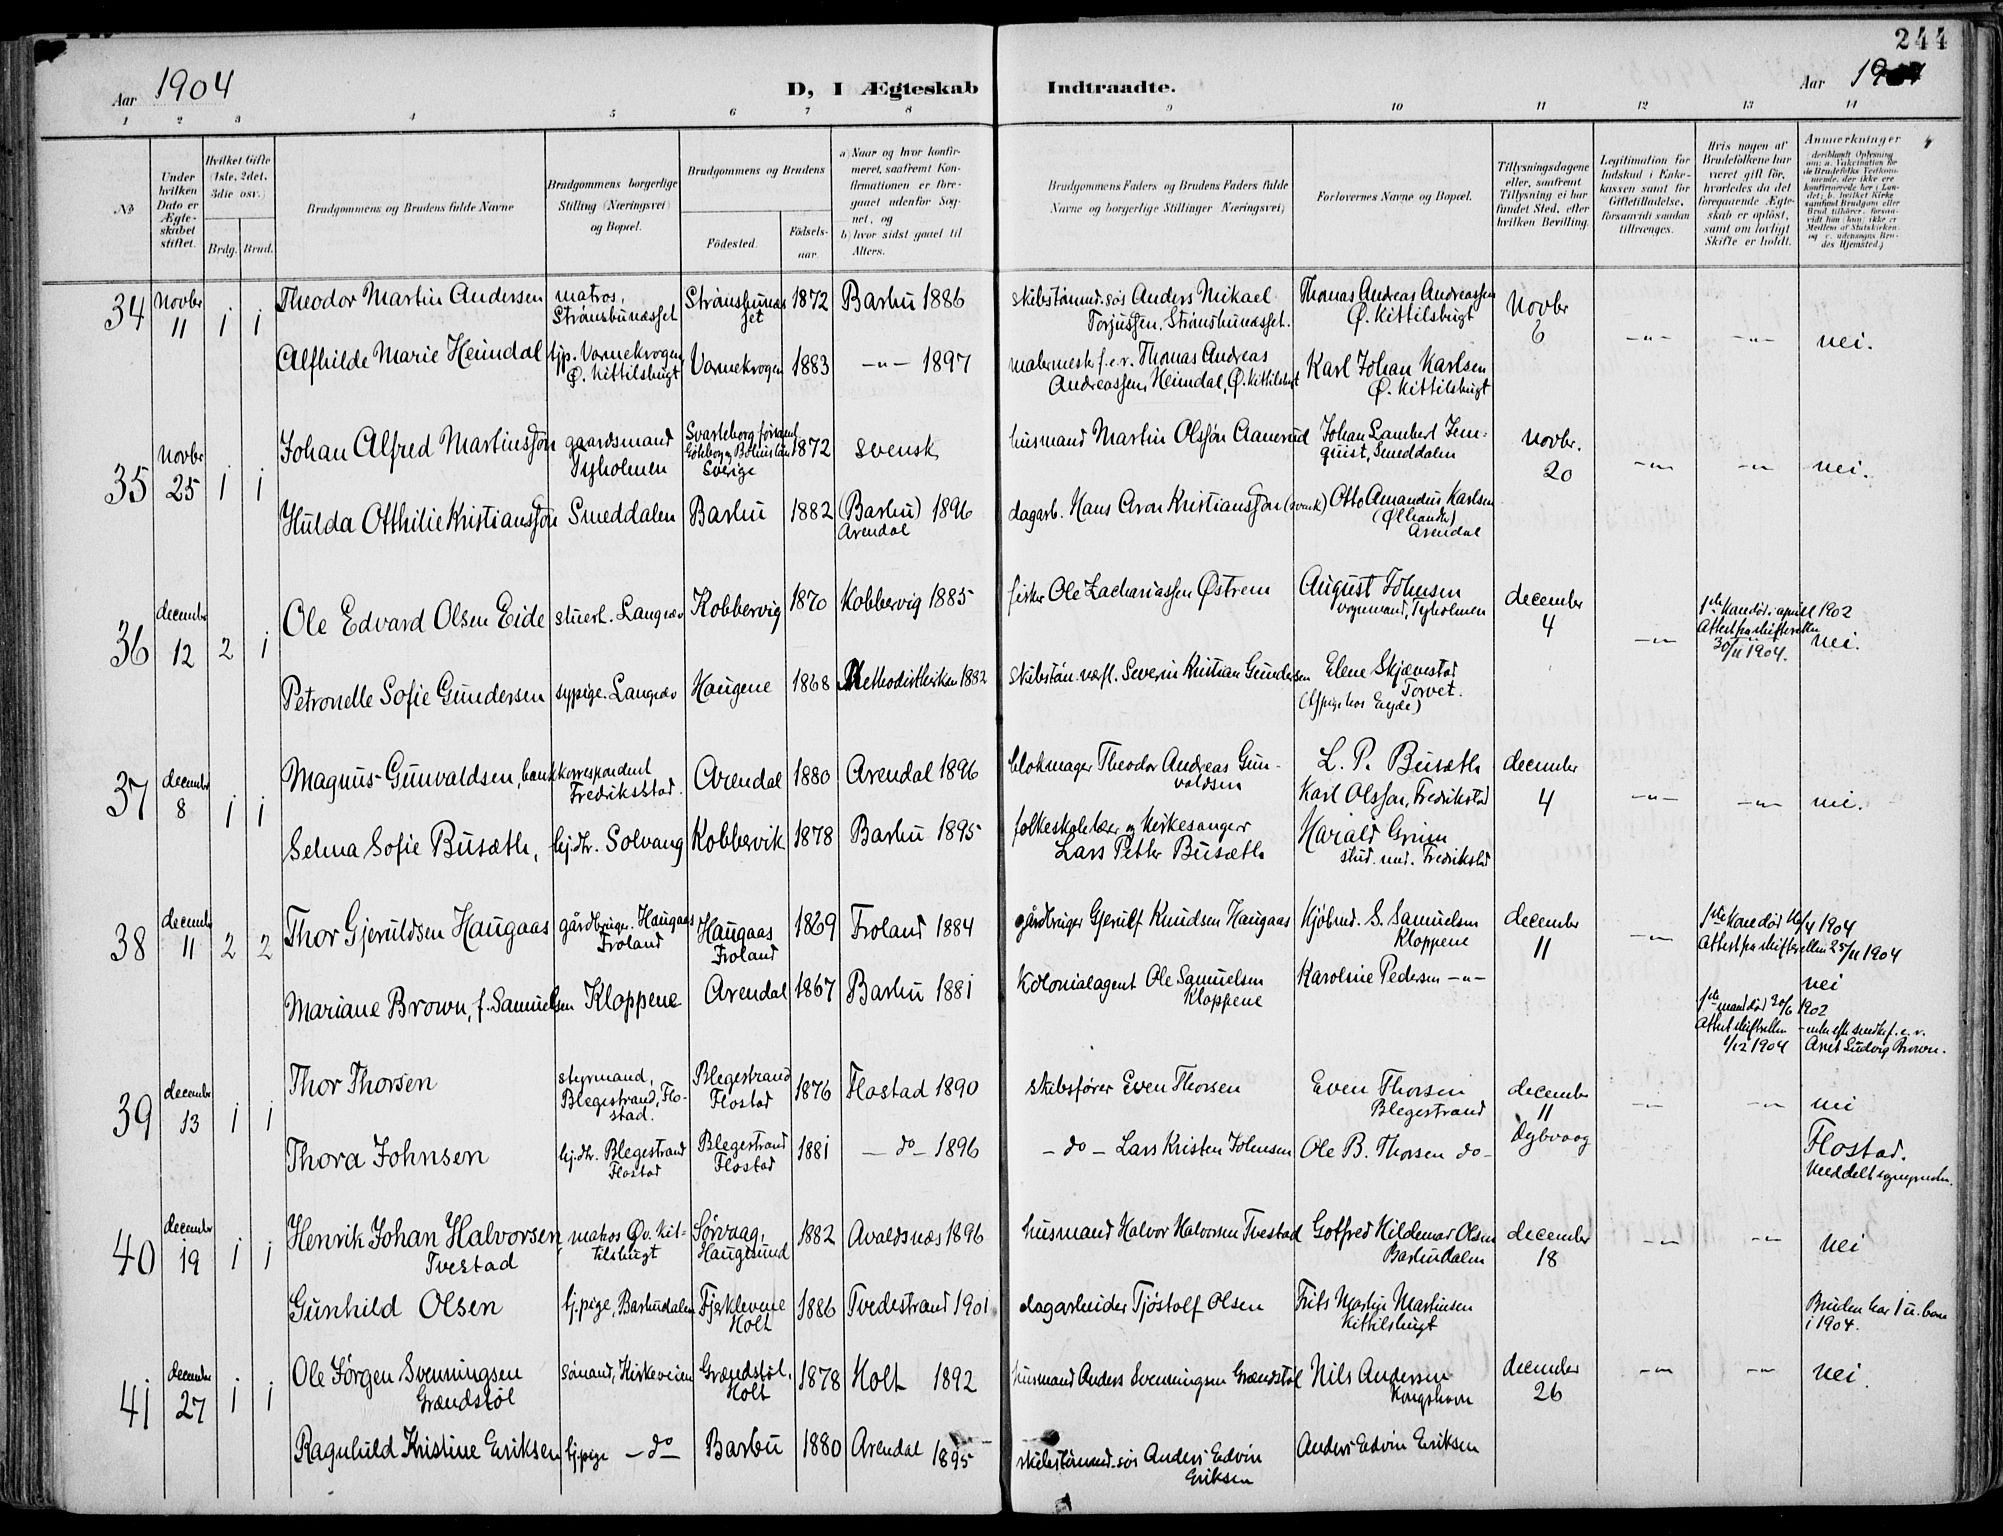 244
Aar 1904
D, I Ægteskab Indtraadte.
Aar 1904
1 2 3 4 5 6 7 8 9 10 11 12 13 14
No
Under hvilken Dato er Ægteskabet stiftet.
Hvilket Gifte (1ste, 2det, 3die osv.)
Brdg. Brud.
Brudgommens og Brudens fulde Navne
Brudgommens borgerlige Stilling (Næringsvei) og Bopæl.
Brudgommens og Brudens
Födested.
Födselsaar.
a) Naar og hvor konfirmeret, saafremt Konfirmationen er foregaaet udenfor Sognet, og
b) hvor sidst gaaet til Alters.
Brudgommens Faders og Brudens Faders fulde Navne og borgerlige Stillinger Næringsvei)
Forlovernes Navne og Bopæl.
Tillysningsdagene eller, saafremt Tillysning ei har fundet Sted, efter hvilken Bevilling.
Legitimation for Indskud i Enkekassen samt for Giftetilladelse, forsaavidt saadan tiltrænges.
Hvis nogen af Brudefolkene har været gift för, hvorledes da det foregaaende Ægteskab er oplöst, samt om lovligt Skifte er holdt.
Anmerkninger
34 Novbr 11 1 1
Theodor Martin Andersen matros, Strømsbunæsset Strømsbunæsset 1872 Barbu 1886 skibstømmd. søs Anders Mikael Torjussen, Strømsbunæsset. Thomas Andreas Andreassen Ø. Kittilsbugt Novbr 6 -"- -"- nei.
Alfhilde Marie Heimdal hjp. Varnekrogen Ø. Kittilsbugt Varnekrogen 1883 -"- 1897 malermester f.e.v. Thomas Andreas Andreassen, Heimdal, Ø. Kittilsbugt Karl Johan Karlsen Ø. Kittilsbugt
35 Novbr 25 1 1
Johan Alfred Martinsson gaardsmand Tyholmen Svarteborg Göteborg Bohuslän Sverige 1872 svensk husmand Martin Olsson Aanerud Johan Lambert Jernquist, Smeddalen Novbr. 20 -"- -"- nei.
Hulda Otthilie Kristiansson Smeddalen Barbu 1882 (Barbu) 1896 Arendal dagarb. Hans Aron Kristiansson (svensk) Otto Amandus Karlsen Arendal
36 december 12 2 1
Ole Edvard Olsen Eide stuert. Langsæv Kobbervig 1870 Kobbervig 1885 fisker Ole Zachariassen Østrem August Johnsen vognmand, Tyholmen december 4 -"- 1ste kone død i april 1902 Attest fra skifteretten 30/11 1904. nei.
Petronelle Sofie Gundersen sypige. Langsæv Haugene 1868 Methodistkirken 1882 skibstøm. Severin Kristian Gundersen Elene Skjævestad Torvet.
37 december 8 1 1
Magnus Gunvaldsen, bankkorrespondent Fredriksstad. Arendal 1880 Arendal 1896 blokmager Theodor Andreas Gunvaldsen L. P. Busæth december 4 -"- -"- nei.
Karl Olsson, Fredrikstad
Selma Sofie Busæth, hj.dtr. Solvang Kobbervik 1878 Barbu 1895 folkeskolelærer og kirkesanger Lars Petter Busæth Harald Grim stud. med. Fredrikstad
38 december 11 2 2
Thor Gjeruldsen Haugaas gårdbruger. Haugaas Froland Haugaas Froland 1869 Froland 1884 gårdbruger Gjerulf Knudsen Haugaas Kjøbmd. S. Samuelsen Kloppene december 11 -"- 1ste kone død 16/4 1904 Attest fra skifteretten 25/11 1904
nei
Mariane Brown, f. Samuelsen Kloppene Arendal 1867 Barbu 1881 kolonialagent Ole Samuelsen Kloppene Karoline Pedersen -"- 1ste mand død 30/6 1902 Attest skifteretten 1/12 1904 - enke efter f.e.v. Axel Ludvig Brown.
39 december 13 1 1
Thor Thorsen styrmand, Blegestrand, Flostad. Blegestrand Flostad 1876 Flostad 1890 skibsfører Even Thorsen Even Thorsen Blegestrand december 11 Dybvaag -"- -"- nei
Thora Johnsen hj.dtr. Blegestrand Flostad Blegestrand Flostad 1881 - do - 1896 - do - Lars Kristen Johnsen Ole B. Thorsen do- Flostad. Meddelt sognepresten.
40 december 19 1 1
Henrik Johan Halvorsen Tvestad matros Øv. Kittilsbugt Sørvaag, Haugesund 1882 Avaldsnæs 1896 husmand Halvor Halvorsen Tvestad Gotfred Hildemar Olsen Barbudalen december 18 -"- -"- nei
Gunhild Olsen tj.pige, Barbudalen Fjerkleivene Holt 1886 Tvedestrand 1901 dagarbeider Tjøstolf Olsen Frits Martin Martinsen Kittilsbugt Bruden har 1 u. barn i 1904.
41 december 27 1 1
Ole Jørgen Svenningsen Grændstøl sømand, Kirkeveien Grændstøl, Holt 1878 Holt 1892 husmand Anders Svenningsen Grændstøl Nils Andersen Kongshavn december 26 -"- -"- nei.
Ragnhild Kristine Eriksen tj.pige - do - Barbu 1880 Arendal 1895 skibstømmd. søs Anders Edvin Eriksen Anders Edvin Eriksen